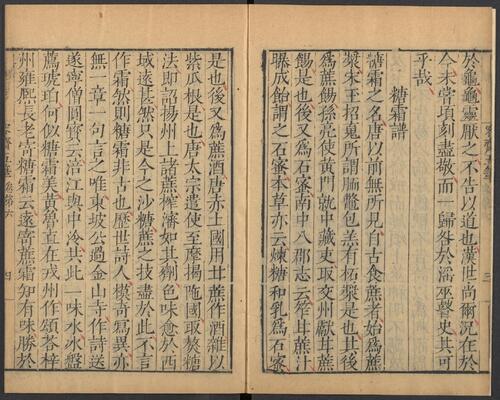 於龜龜猒之不告以道也漢世尚爾況在於
今未嘗頃刻盡敬而一歸咎於淫巫瞽史其可
乎哉
糖霜譜
糖霜之名唐以前無所見自古食蔗者始爲蔗
漿宋玉招䰟所謂胹鼈包羔有柘漿是也其後
爲蔗餳孫亮使黄門就中藏吏取交州獻甘蔗
餳是也後又爲石蜜南中八郡志云笮甘蔗汁
曝成飴謂之石蜜本草亦云煉糖和乳爲石蜜
是也後又爲蔗酒唐赤土國用甘蔗作酒雜以
紫瓜根是也唐太宗遣使至摩揭陁國取熬糖
法即詔揚州上諸蔗榨瀋如其劑色味愈於西
域遠甚然只是今之沙糖蔗之技盡於此不言
作霜然則糖霜非古也歷世詩人模奇寫異亦
無一章一句言之唯東坡公過金山寺作詩送
遂寧僧圓寳云涪江與中泠共此一味水冰盤
薦琥珀何似糖霜美黄魯直在戎州作頌荅梓
州雍熙長老寄糖霜云遠寄蔗霜知有味勝於